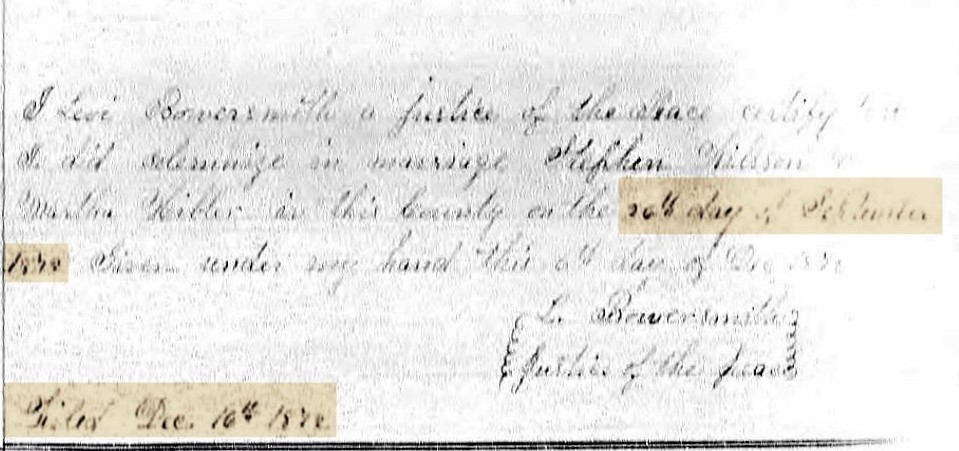 I Levi Bowersmith a justice of the Peace certify
I did solemnize in marriage Stephen
Martha Hibler in this County on the day of September
Given under my hand this day of Dec
L. Bowersmith
Justice of the Peace
Filed Dec. 16th